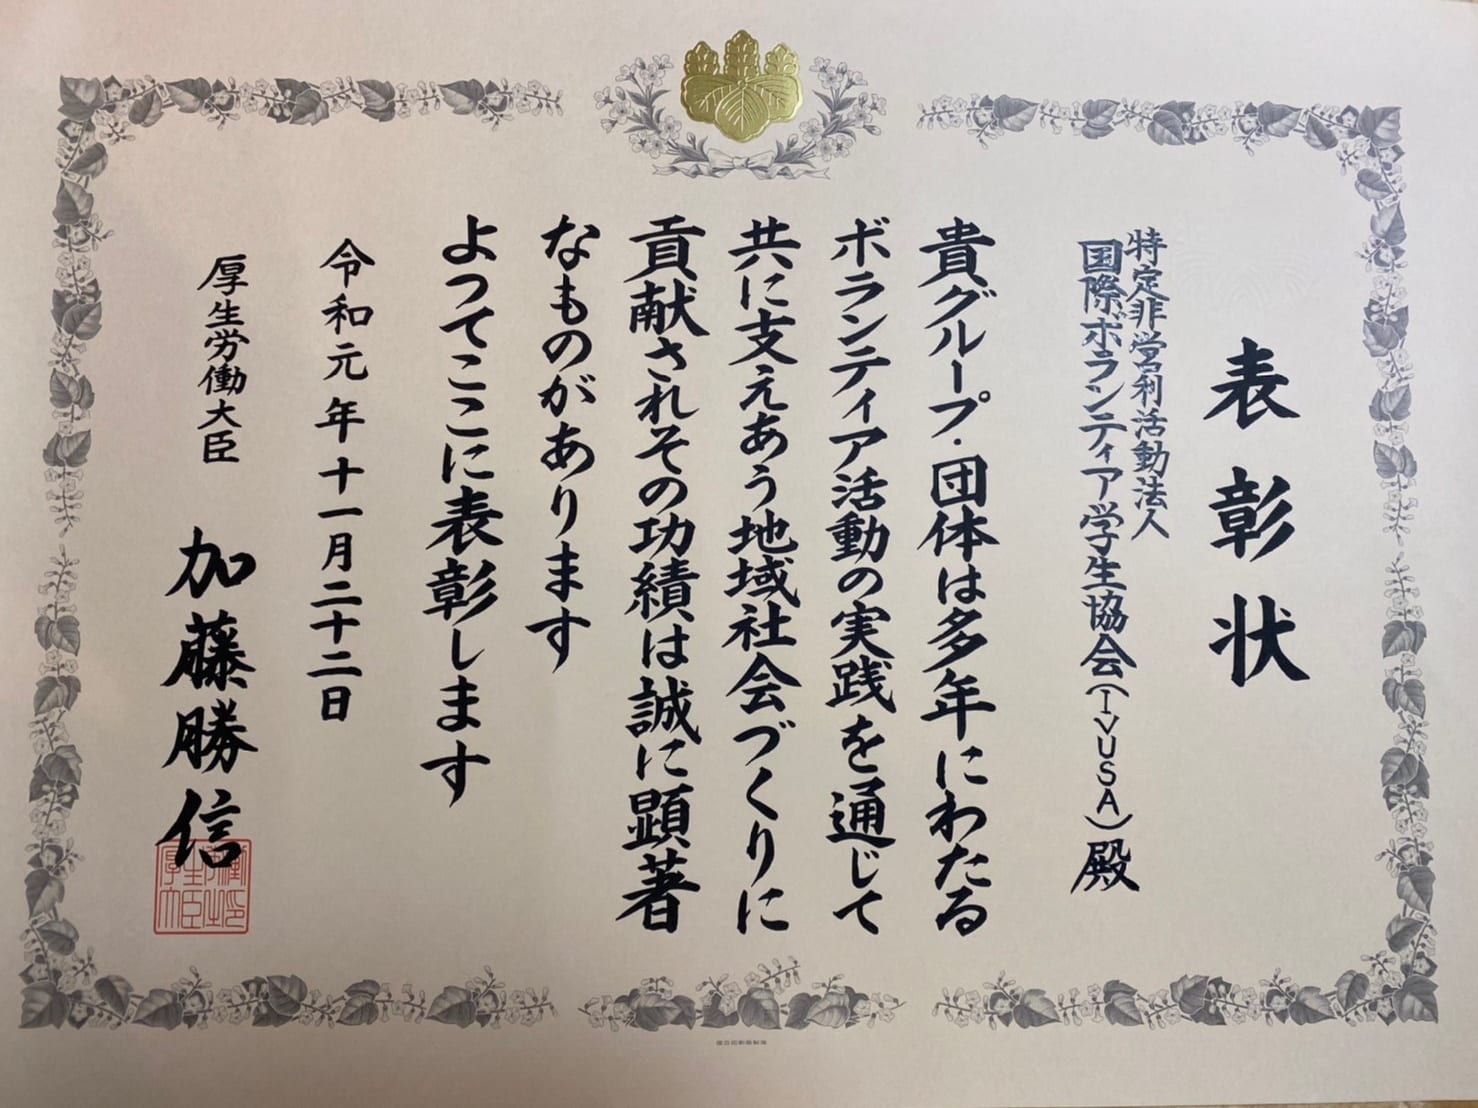 表彰状
特定非営利活動法人
国際ボランティア学生協会(IVUSA)殿
貴グループ・団体は多年にわたる
ボランティア活動の実践を通じて
共に支えあう地域社会づくりに
貢献されその功績は誠に顕著
なものがあります
よってここに表彰します
令和元年十一月二十二日
厚生労働大臣
加藤勝信